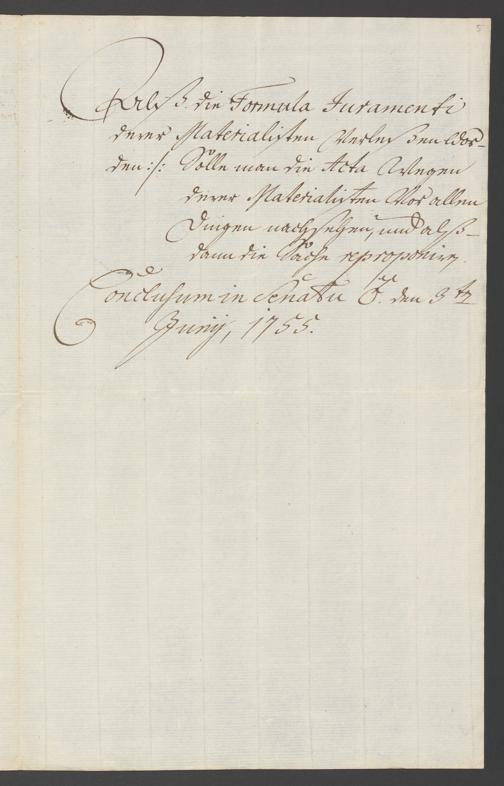 5
Alß die Formula Juramenti
derer Materialisten Verlesen wor-
den :/: Solle man die Acta Wegen
derer Materialisten Vor allen
Dingen nachsehen, und alß-
dann die Sache reproponirn.
Conclusum in Senatu den 9ten
Junij, 1755.